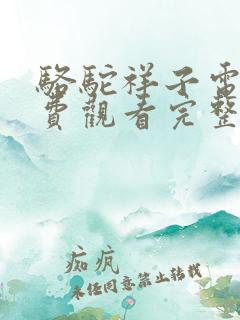 駱駝祥子電
費觀看完整
痴疯
未经同意禁止转载